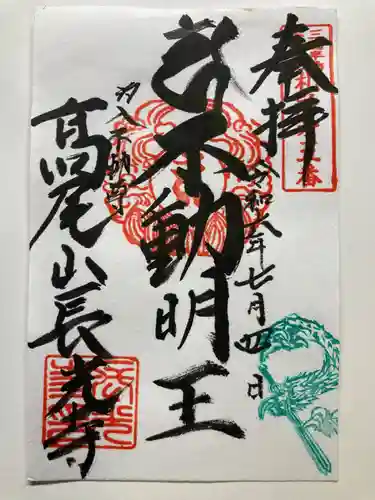 奉拝
令和六年七月四日
不動明王
力八不動尊
高尾山長光寺